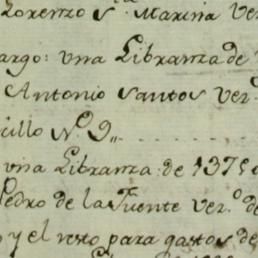 Lorenzo S.ta Marina Ver
argo: una Libranza de
Antonio Santos ver.º
cillo Nº 9,,
una Libranza de 1375
Pedro de la Fuente ver.º de
y el resto para gastos de